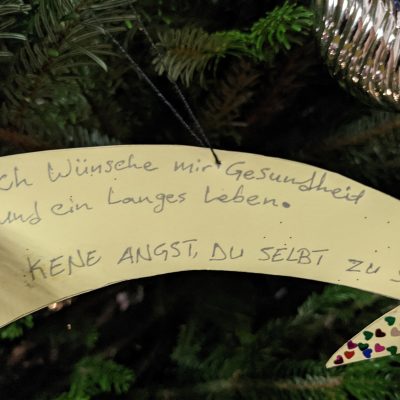 ch Wünsche mir Gesundheit
und ein Langes Leben.
KENE ANGST, DU SELBT ZU S